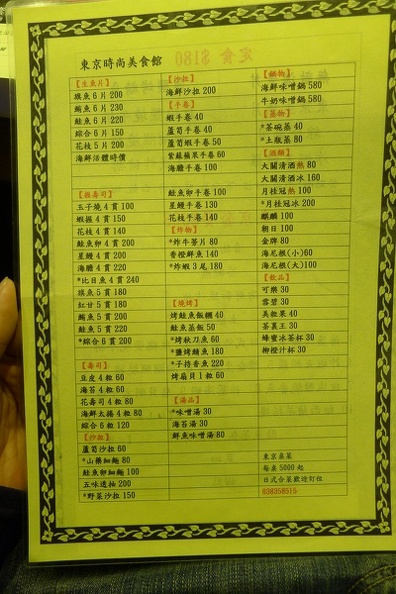 東京時尚美食館
【生魚片】
旗魚 6 片 200
鮪魚 6 片 230
鮭魚 6 片 220
綜合 6 片 150
花枝 5 片 200
海鮮活體時價
【握壽司】
玉子燒 4 貫 100
蝦握 4 貫 150
花枝 4 貫 140
鮭魚卵 4 貫 200
星鰻 4 貫 200
海膽 4 貫 220
*比目魚 4 貫 240
旗魚 5 貫 180
紅甘 5 貫 180
鮪魚 5 貫 200
鮭魚 5 貫 220
*綜合 6 貫 200
【壽司】
豆皮 4 粒 60
海苔 4 粒 60
花壽司 4 粒 80
海鮮太捲 4 粒 80
綜合 6 粒 120
【沙拉】
蘆筍沙拉 60
*山藥細麵 80
鮭魚卵細麵 100
五味透抽 200
*野菜沙拉 150
【沙拉】
海鮮沙拉 200
【手卷】
蝦手卷 40
蘆筍手卷 40
蘆筍蝦手卷 50
紫蘇蘋果手卷 60
海膽手卷 100
鮭魚卵手卷 100
星鰻手卷 130
花枝手卷 140
【炸物】
*炸牛蒡片 80
香橙鮮魚 140
*炸蝦 3 尾 180
【燒烤】
烤鮭魚飯糰 40
鮭魚蒸飯 50
*烤秋刀魚 60
*鹽烤鯖魚 180
*子持香魚 220
烤扇貝 1 粒 60
【湯品】
*味噌湯 30
海苔湯 30
鮮魚味噌湯 80
【鍋物】
海鮮味噌鍋 580
牛奶味噌鍋 580
【蒸物】
*茶碗蒸 40
*土瓶蒸 80
【酒類】
大關清酒熱 80
大關清酒冰 160
*月桂冠熱 100
*月桂冠冰 200
麒麟 100
朝日 100
金牌 80
海尼根(小)60
海尼根(大)100
【飲品】
可樂 30
雪碧 30
美粒果 40
茶裏王 30
蜂蜜冰茶杯 30
柳橙汁杯 30
東京桌菜
每桌 5000 起
日式合菜歡迎訂位
038358515